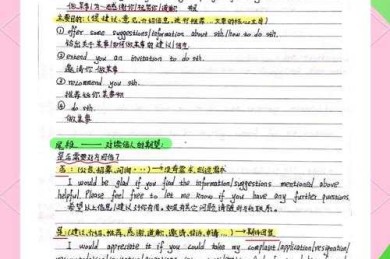 主要目的：(提建议,意见,介绍信息,进行推荐...文章的核心部分)
① offer some suggestions/information about sth/how to do sth.
给出关于某事/如何做某事的建议/信息
② extend an invitation to do sth.
邀请你做某事
③ recommend you sth.
推荐给你某事物
④ do sth.
做某事
尾段 —— 对读信人的期望:
是否需要对方回信?
否:
I would be glad if you find the information/suggestions mentioned above
helpful. Please feel free to let me know if you have any further questions.
希望以上信息/建议对你有用。如果有其它问题请随时与我联系。
是:(建议,介绍,推荐,感谢,道歉,邀请,投诉,申请...)→期待回复
I would appreciate it if you could take my complaint/application/resignation/